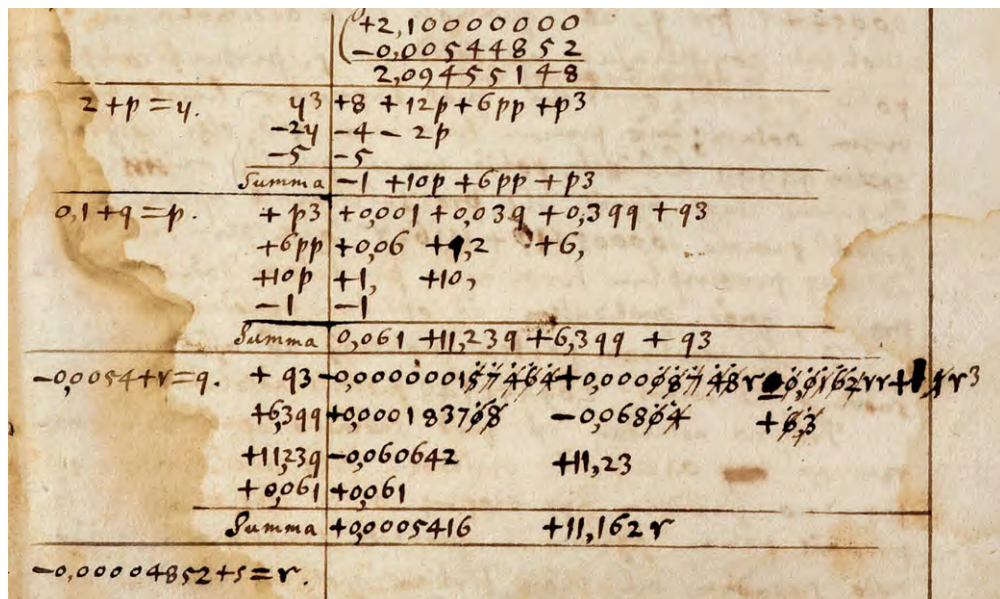 +2,10000000
-0,00544852
2,09455148
2+p=y. y3 +8 +12p +6pp +p3
-2y -4 - 2p
-5 -5
Summa -1 +10p +6pp +p3
0,1+q=p. +p3 +0,001 +0,03q +0,3qq +q3
+6pp +0,06 +1,2 +6,
+10p +1, +10,
-1 -1
Summa 0,061 +11,23q +6,3qq + q3
-0,0054+r=q. + q3 -0,000000157464+0,00008748r -0,0162rr+ r3
+6,3qq +0,000183708 -0,06804 +6,3
+11,23q -0,060642 +11,23
+0,061 +0,061
Summa +0,0005416 +11,162r
-0,00004852+s=r.